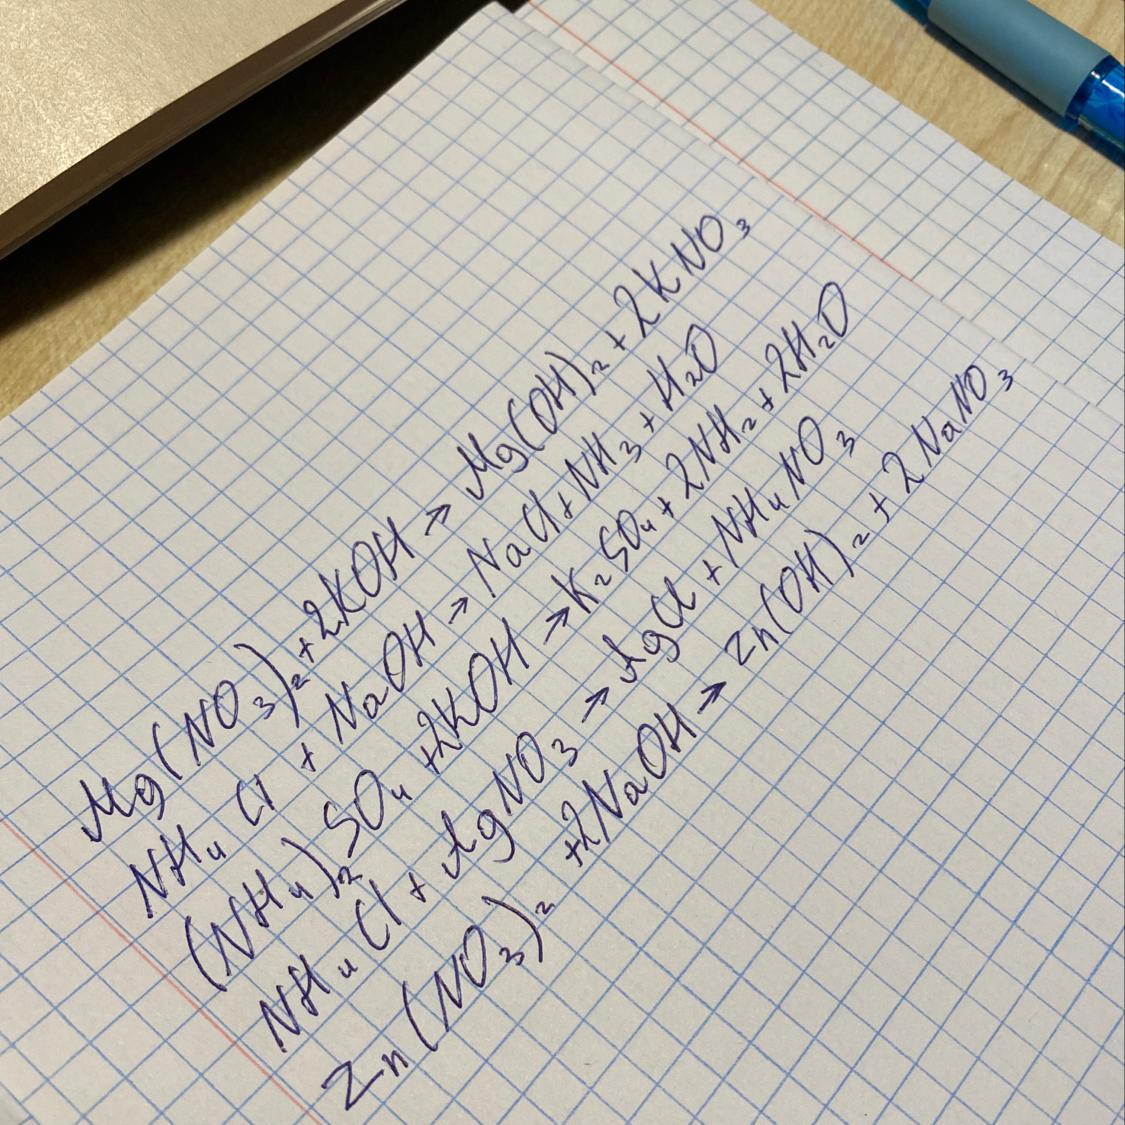 Mg(NO₃)₂+2KOH → Mg(OH)₂+2KNO₃
NH₄Cl + NaOH → NaCl+NH₃+H₂O
(NH₄)₂SO₄+2KOH → K₂SO₄+2NH₂+2H₂O
NH₄Cl + AgNO₃ → AgCl + NH₄NO₃
Zn(NO₃)₂ +2NaOH → Zn(OH)₂ + 2NaNO₃